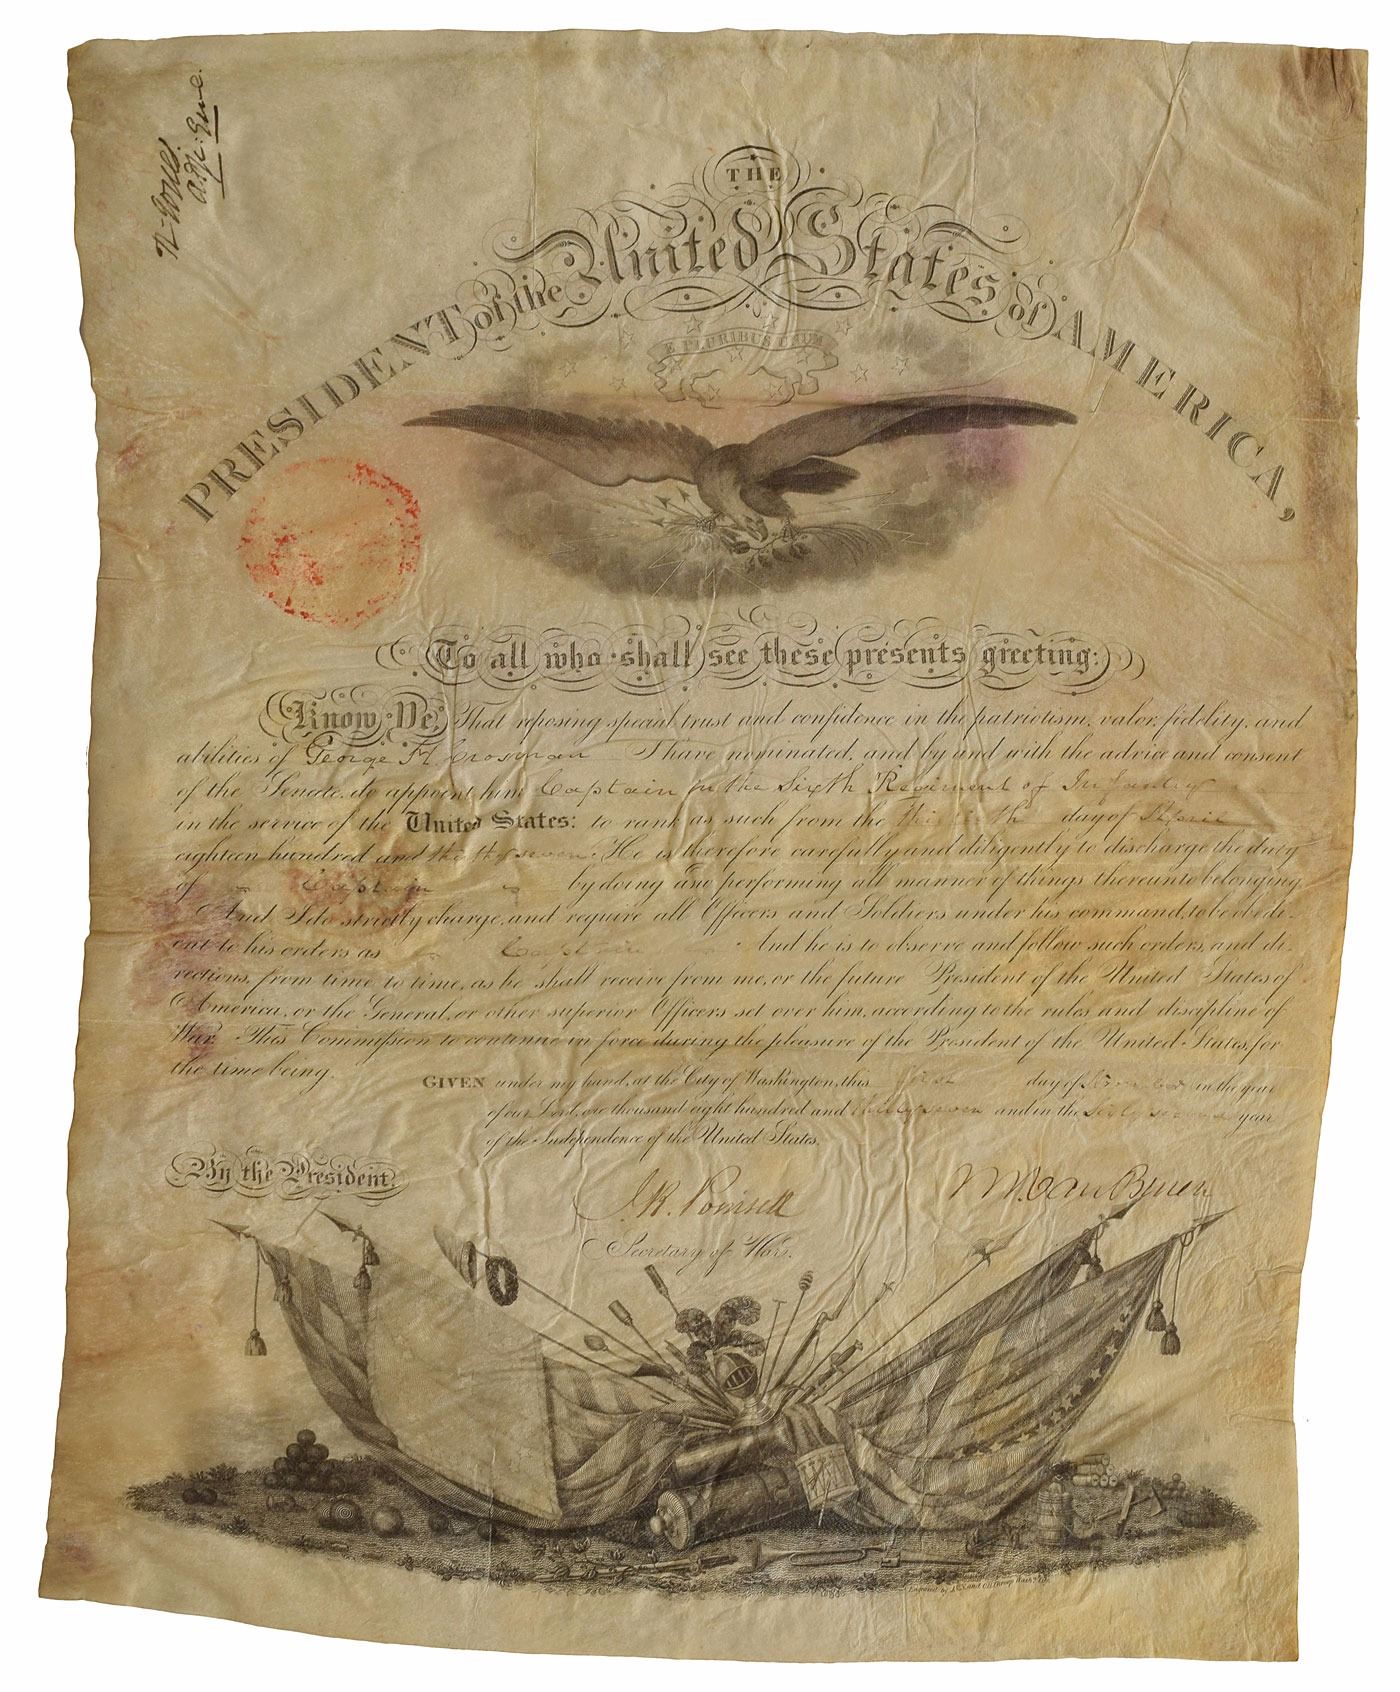 R. Jones.
Adj: Gen.
THE
PRESIDENT of the United States of AMERICA,
E PLURIBUS UNUM
To all who shall see these presents greeting:
Know Ye, That reposing special trust and confidence in the patriotism, valor, fidelity, and
abilities of George H. Crosman I have nominated, and by and with the advice and consent
of the Senate, do appoint him Captain in the Sixth Regiment of Infantry
in the service of the United States: to rank as such from the thirtieth day of April
eighteen hundred and thirty seven. He is therefore carefully and diligently to discharge the duty
of Captain by doing and performing all manner of things thereunto belonging.
And I do strictly charge, and require all Officers and Soldiers under his command, to be obedi-
ent to his orders as Captain And he is to observe and follow such orders, and di-
rections, from time to time, as he shall receive from me, or the future President of the United States of
America, or the General, or other superior Officers set over him, according to the rules and discipline of
War. This Commission to continue in force during the pleasure of the President of the United States, for
the time being.
GIVEN under my hand, at the City of Washington, this first day of in the year
of our Lord, one thousand eight hundred and thirty seven and in the Sixty second year
of the Independence of the United States.
By the President,
J. R. Poinsett M. Van Buren
Secretary of War.